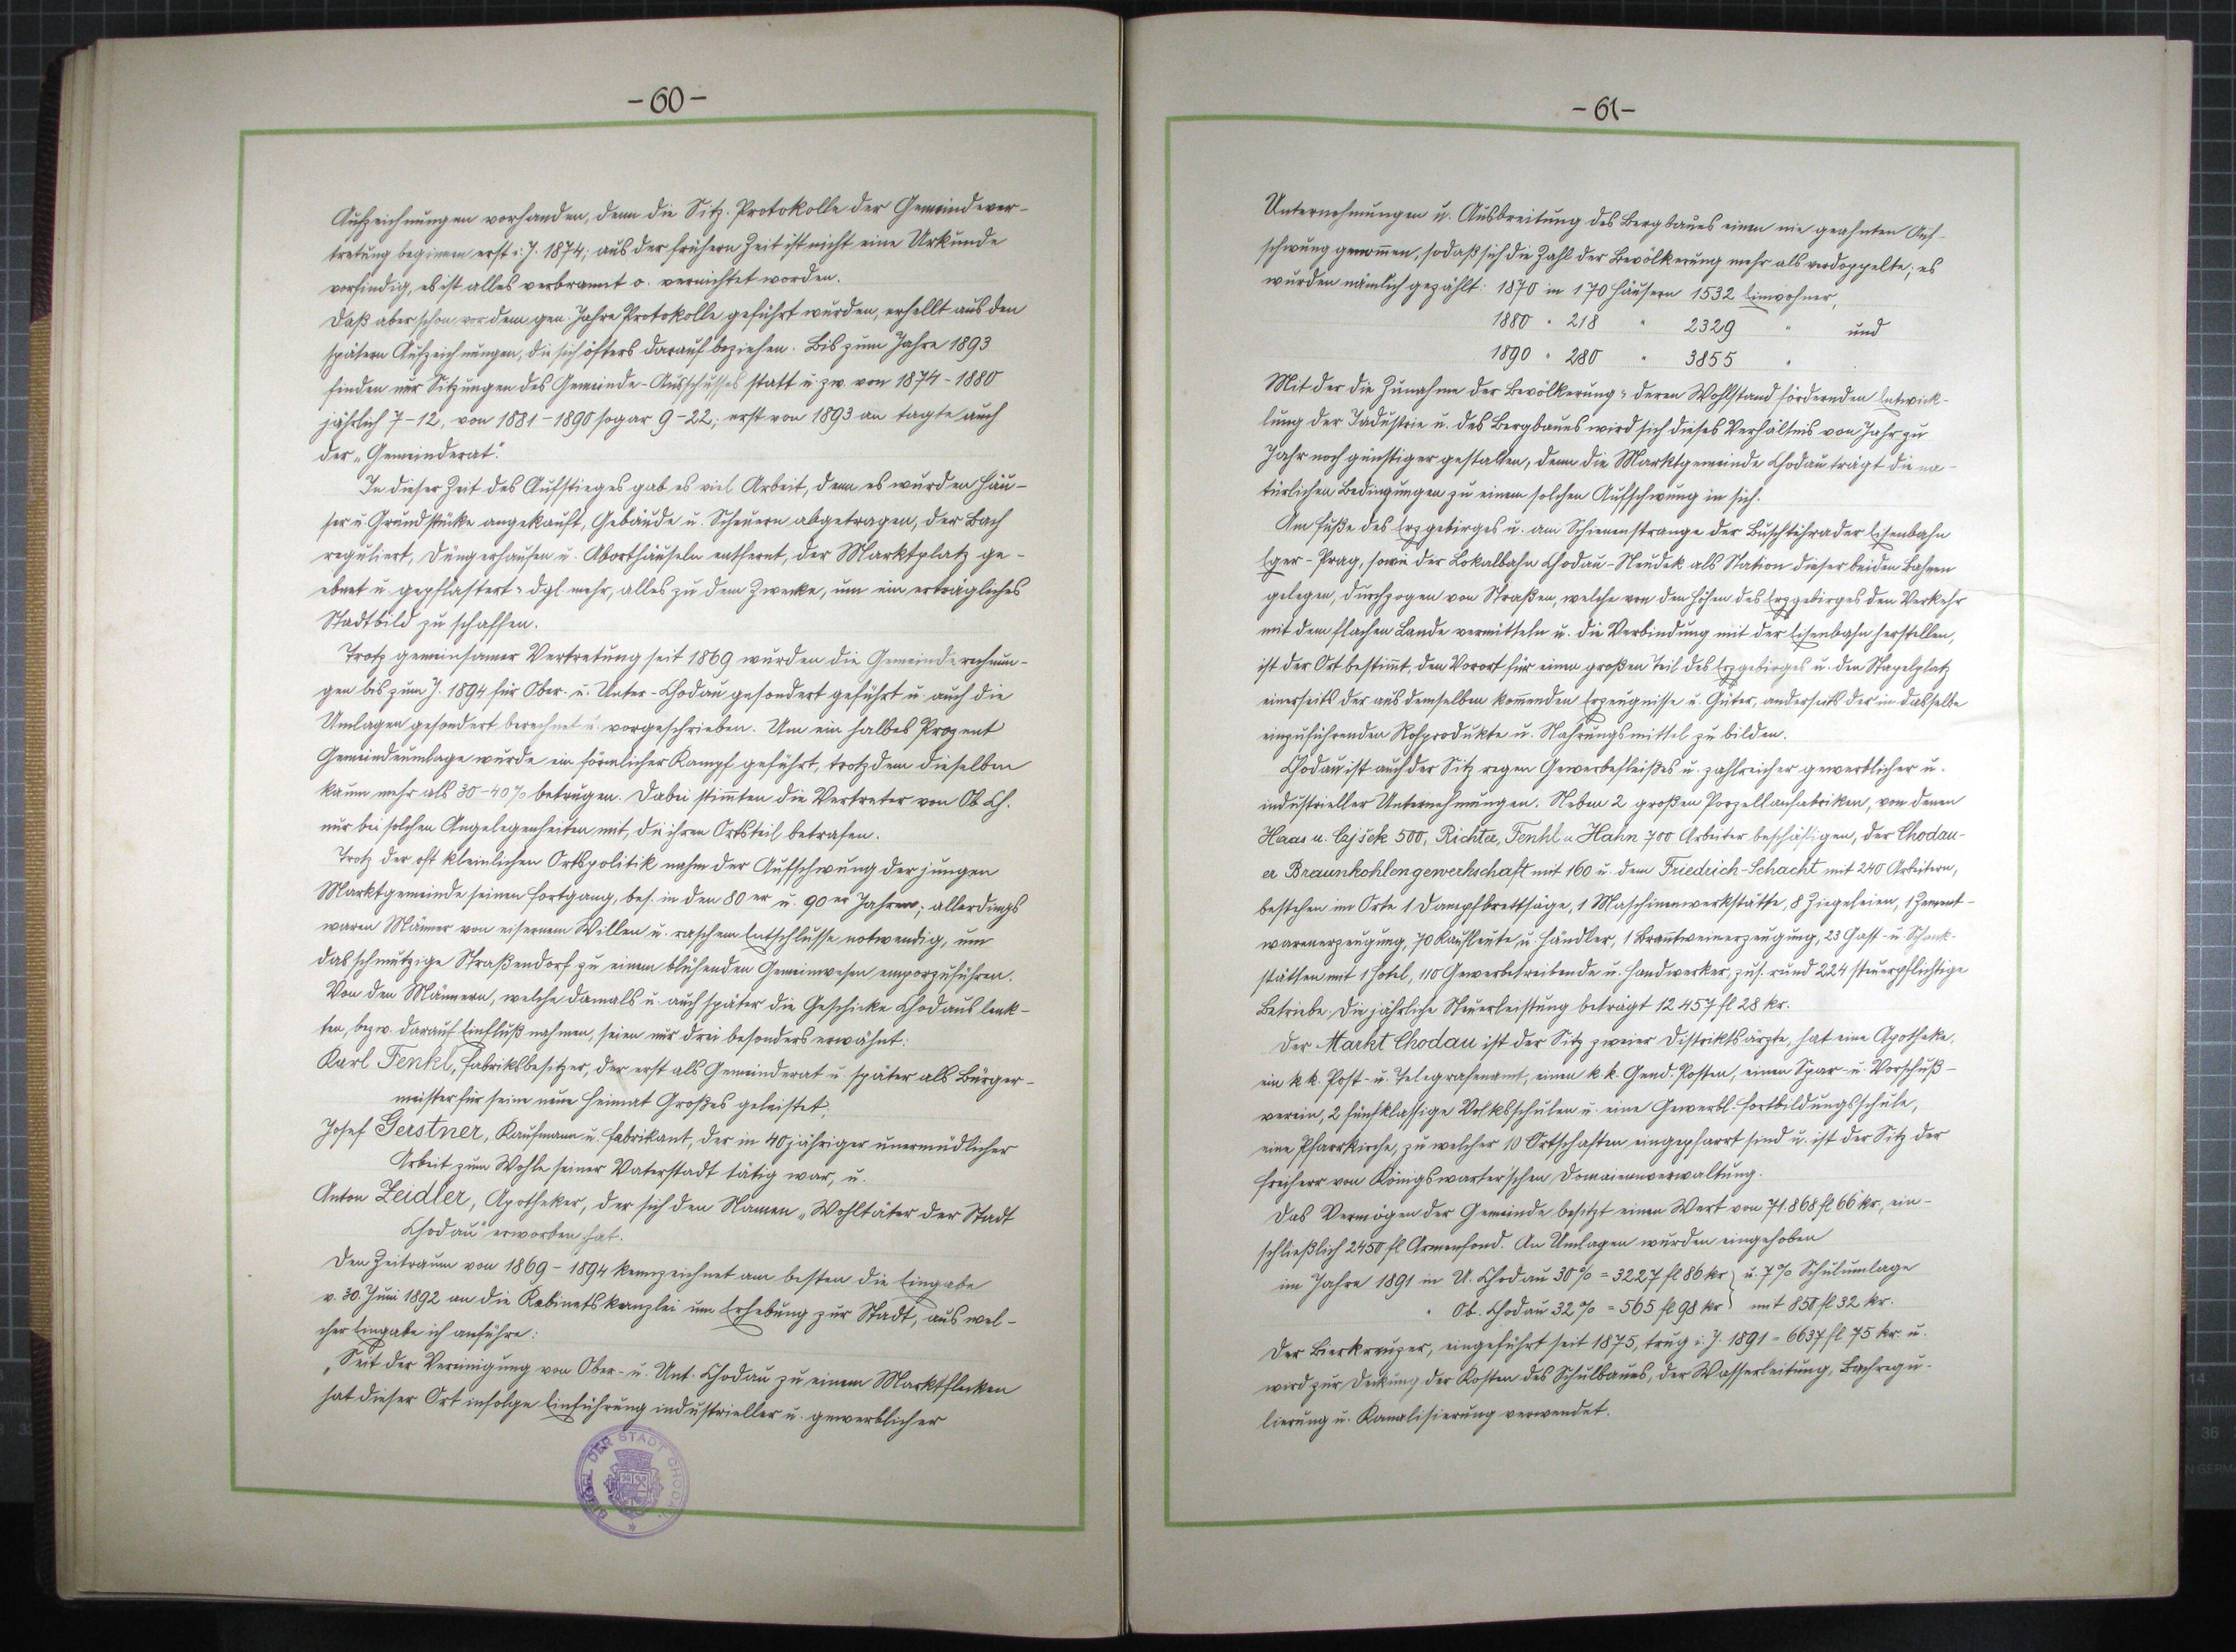 -60-
Aufzeichnungen vorhanden, denn die Sitz. Protokolle der Gemeindever-
tretung beginnen erst i. J. 1874; aus der frühern Zeit ist nicht eine Urkunde
vorfindig, es ist alles verbrannt o. vernichtet worden.
Daß aber schon vor dem gen. Jahre Protokolle geführt wurden, erhellt aus den
spätern Aufzeichnungen, die sich öfters darauf beziehen. Bis zum Jahre 1893
finden nur Sitzungen des Gemeinde-Ausschusses statt u. zw. von 1874-1880
jährlich 7-12, von 1881-1890 sogar 9-22; erst von 1893 an tagte auch
der „Gemeinderat".
In dieser Zeit des Aufstieges gab es viel Arbeit, denn es wurden Häu-
ser u. Grundstücke angekauft, Gebäude u. Scheuern abgetragen, der Bach
reguliert, Düngerhaufen u. Aborthäuseln entfernt, der Marktplatz ge-
ebnet u. gepflastert u. dgl. mehr, alles zu dem Zwecke, um ein erträgliches
Stadtbild zu schaffen.
Trotz gemeinsamer Vertretung seit 1869 wurden die Gemeinderechnun-
gen bis zum J. 1894 für Ober- u. Unter-Chodau gesondert geführt u. auch die
Umlagen gesondert berechnet u. vorgeschrieben. Um ein halbes Prozent
Gemeindeumlage wurde ein förmlicher Kampf geführt, trotzdem dieselben
kaum mehr als 30-40% betrugen. Dabei stimmten die Vertreter von Ob. Ch.
nur bei solchen Angelegenheiten mit, die ihren Ortsteil betrafen.
Trotz der oft kleinlichen Ortspolitik nahm der Aufschwung der jungen
Marktgemeinde seinen Fortgang, bes. in den 80er u. 90er Jahren; allerdings
waren Männer von eisernem Willen u. raschem Entschlusse notwendig, um
das schmutzige Straßendorf zu einem blühenden Gemeinwesen emporzuführen.
Von den Männern, welche damals u. auch später die Geschicke Chodaus lenk-
ten, bezw. darauf Einfluß nahmen, seien nur drei besonders erwähnt:
Karl Fenkl, Fabriksbesitzer, der erst als Gemeinderat u. später als Bürger-
meister für seine neue Heimat Großes geleistet,
Josef Gerstner, Kaufmann u. Fabrikant, der in 40jähriger unermüdlicher
Arbeit zum Wohle seiner Vaterstadt tätig war, u.
Anton Zeidler, Apotheker, der sich den Namen „Wohltäter der Stadt
Chodau" erworben hat.
Den Zeitraum von 1869-1894 kennzeichnet am besten die Eingabe
v. 30. Juni 1892 an die Kabinetskanzlei um Erhebung zur Stadt, aus wel-
cher Eingabe ich anführe:
„Seit der Vereinigung von Ober- u. Unt. Chodau zu einem Marktflecken
hat dieser Ort infolge Einführung industrieller u. gewerblicher
DER STADT CHODAU
-61-
Unternehmungen u. Ausbreitung des Bergbaues einen nie geahnten Auf-
schwung genommen, sodaß sich die Zahl der Bevölkerung mehr als verdoppelte; es
wurden nämlich gezählt: 1870 in 170 Häusern 1532 Einwohner,
1880 " 218 " 2329 " und
1890 " 280 " 3855 "
Mit der die Zunahme der Bevölkerung u. deren Wohlstand fördernden Entwick-
lung der Industrie u. des Bergbaues wird sich dieses Verhältnis von Jahr zu
Jahr noch günstiger gestalten, denn die Marktgemeinde Chodau trägt die na-
türlichen Bedingungen zu einem solchen Aufschwung in sich.
Am Fuße des Erzgebirges u. am Schienenstrange der Buschtěhrader Eisenbahn
Eger-Prag, sowie der Lokalbahn Chodau-Neudek als Station dieser beiden Bahnen
gelegen, durchzogen von Straßen, welche von den Höhen des Erzgebirges den Verkehr
mit dem flachen Lande vermitteln u. die Verbindung mit der Eisenbahn herstellen,
ist der Ort bestimmt, den Vorort für einen großen Teil des Erzgebirges u. den Stapelplatz
einerseits der aus demselben kommenden Erzeugnisse u. Güter, anderseits der in dasselbe
einzuführenden Rohprodukte u. Nahrungsmittel zu bilden.
Chodau ist auch der Sitz regen Gewerbefleißes u. zahlreicher gewerblicher u.
industrieller Unternehmungen. Neben 2 großen Porzellanfabriken, von denen
Haas u. Cžjžek 500, Richter, Fenkl u. Hahn 700 Arbeiter beschäftigen, der Chodau-
er Braunkohlengewerkschaft mit 160 u. dem Friedrich-Schacht mit 240 Arbeitern,
bestehen im Orte 1 Dampfbrettsäge, 1 Maschinenwerkstätte, 8 Ziegeleien, 1 Zement-
warenerzeugung, 70 Kaufleute u. Händler, 1 Branntweinerzeugung, 23 Gast- u. Schank-
stätten mit 1 Hotel, 110 Gewerbetreibende u. Handwerker, zus. rund 224 steuerpflichtige
Betriebe. Die jährliche Steuerleistung beträgt 12 457 fl 28 kr.
Der Markt Chodau ist der Sitz zweier Distriktsärzte, hat eine Apotheke,
ein k.k. Post- u. Telegrafenamt, einen k.k. Gend. Posten, einen Spar- u. Vorschuß-
verein, 2 fünfklassige Volksschulen u. eine Gewerbl. Fortbildungsschule,
eine Pfarrkirche, zu welcher 10 Ortschaften eingepfarrt sind u. ist der Sitz der
Freiherr von Königswarter'schen Domainenverwaltung.
Das Vermögen der Gemeinde besitzt einen Wert von 71.868 fl 66 kr, ein-
schließlich 2450 fl Armenfond. An Umlagen wurden eingehoben
im Jahre 1891 in U. Chodau 30% = 3227 fl 86 kr } u. 7% Schulumlage
" Ob. Chodau 32% = 565 fl 98 kr } mit 850 fl 32 kr.
Der Bierkreuzer, eingeführt seit 1875, trug i. J. 1891 = 6637 fl 75 kr. u.
wird zur Deckung der Kosten des Schulbaues, der Wasserleitung, Bachregu-
lierung u. Kanalisierung verwendet.